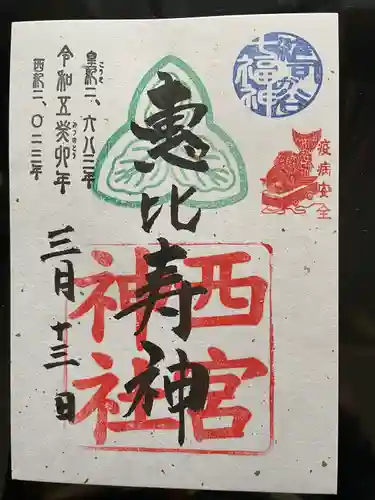 七福神
疫病安全
惠比寿神
西宮
神社
皇紀二、六八三年
令和五癸卯年
西紀二、〇二三年
三月十三日